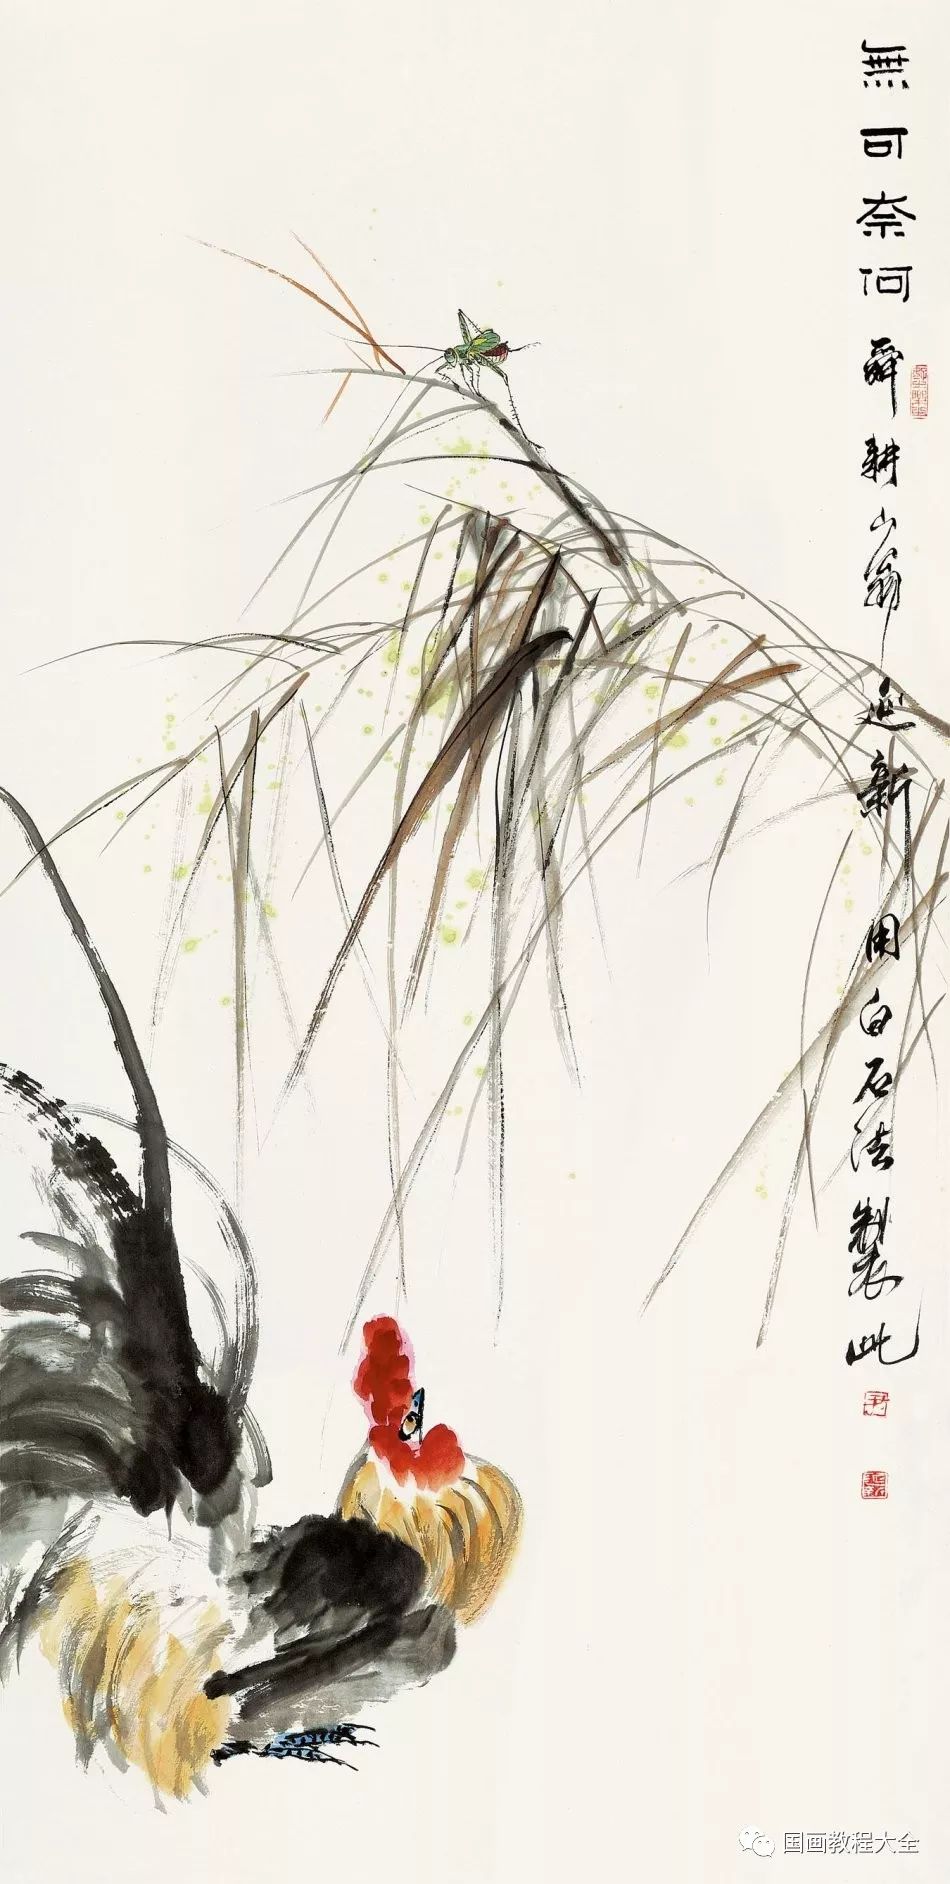 無可奈何 舜耕山翁延新 用白石法製此
尹
延新
国画教程大全